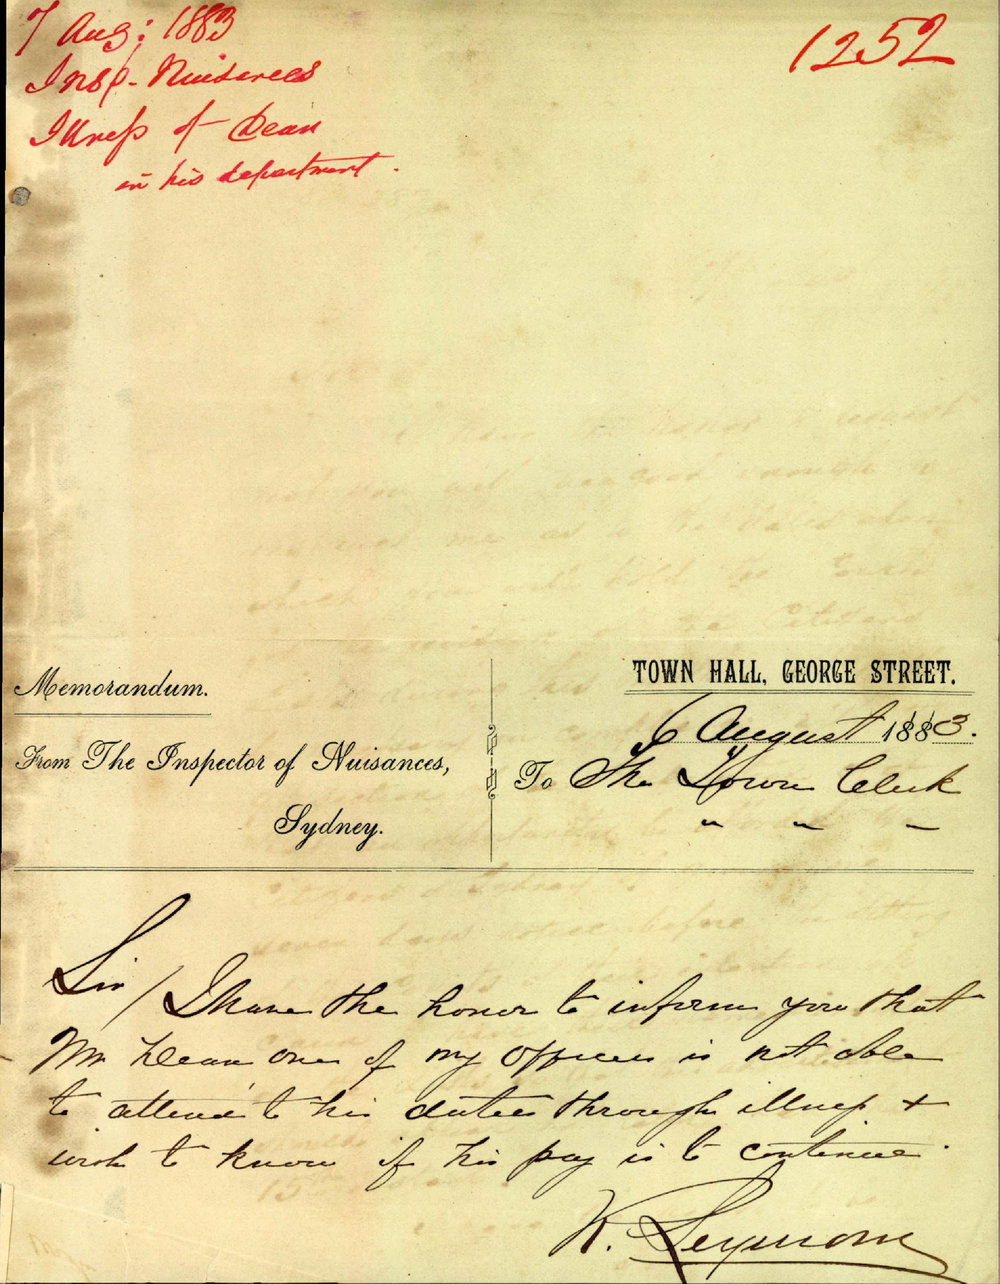 7 Aug: 1883
1252
Insp. Nuisances
Illness of Dean
in his department.
Memorandum.
From The Inspector of Nuisances,
Sydney.
TOWN HALL, GEORGE STREET.
6 August 1883.
To The Town Clerk
" " "
Sir/ I have the honor to inform you that
Mr Dean one of my Officers is not able
to attend to his duties through illness +
wish to know if his pay is to continue.
R. Seymour